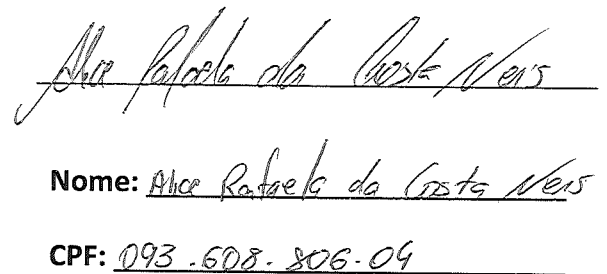 Alice Rafaela da Costa Neis
Nome: Alice Rafaela da Costa Neis
CPF: 093.608.806-04